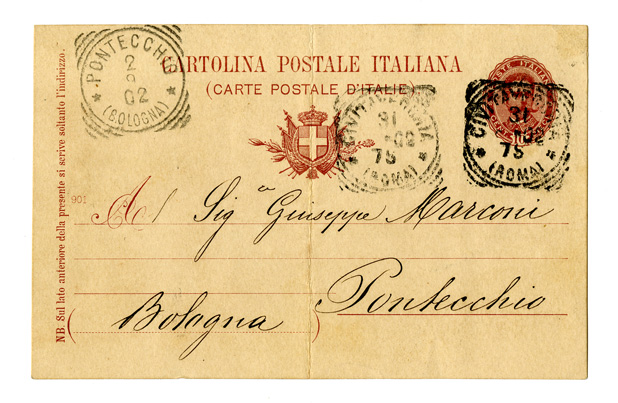 CARTOLINA POSTALE ITALIANA
(CARTE POSTALE D'ITALIE)
PONTECCHIO
2
02
(BOLOGNA)
CIVITAVECCHIA
31
02
7S
(ROMA)
CIVITAVECCHIA
31
02
7S
(ROMA)
901
Al Sig Giuseppe Marconi
Pontecchio
(Bologna)
NB. Sul lato anteriore della presente si scrive soltanto l'indirizzo.